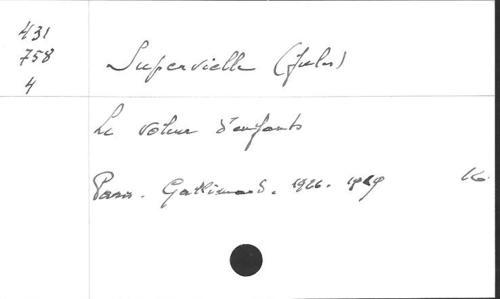 431
758
4
Supervielle (Jules)
Le voleur d'enfants
Paris. Gallimard. 1926.